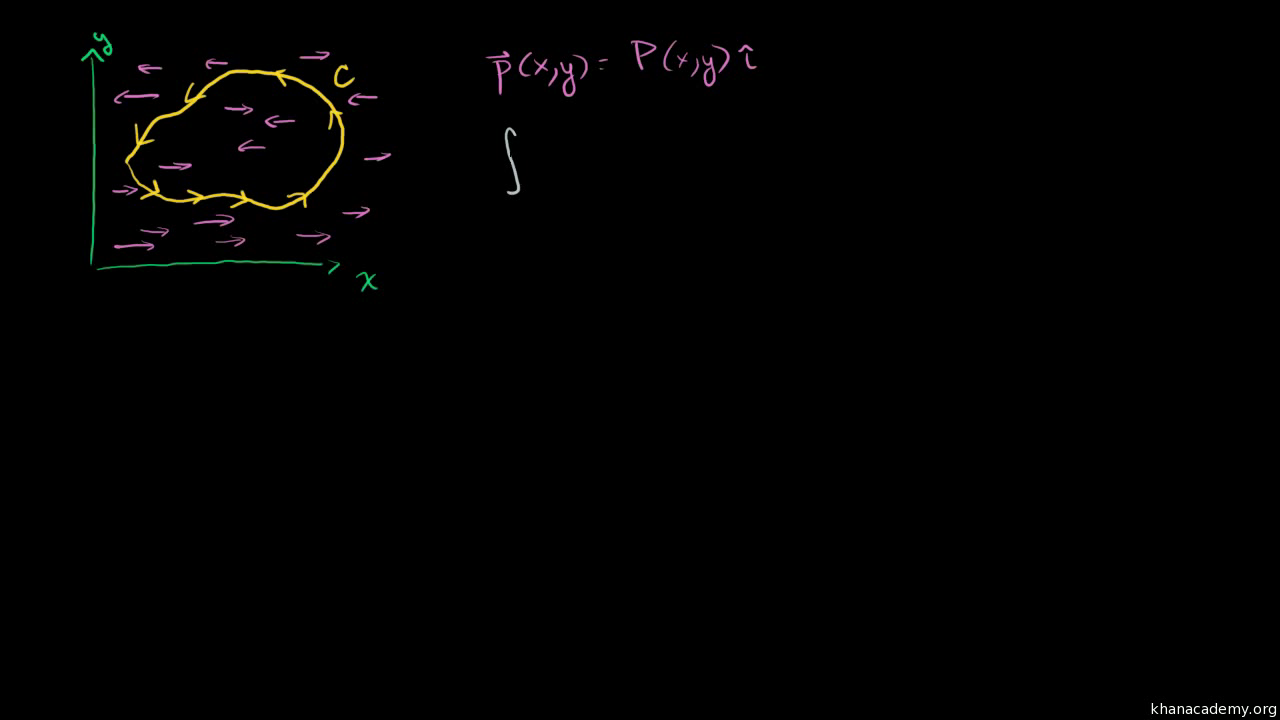 y
C
x
p⃗(x,y) = P(x,y) î
∫
khanacademy.org